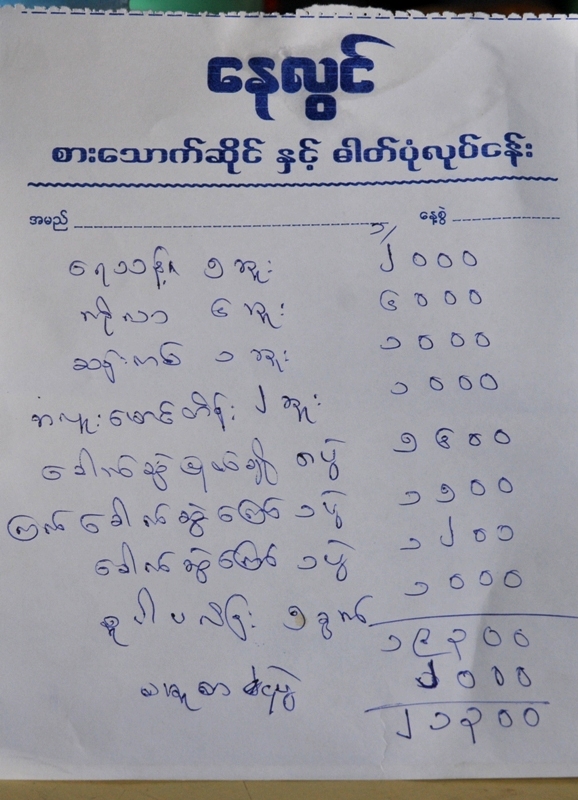 နေလွင်
စားသောက်ဆိုင် နှင့် ဓါတ်ပုံလုပ်ငန်း
အမည် နေ့စွဲ
ရေသန့် ၅ ဘူး ၂၀၀၀
ကိုလာ ၄ ဘူး ၄၀၀၀
ဆန်းကစ် ၁ ဘူး ၁၀၀၀
ဘလူးမောင်တိန်း ၂ ဘူး ၁၀၀၀
ခေါက်ဆွဲ ပွဲ ၅၄၀၀
ကြက်ခေါက်ဆွဲကြော် ၁ ပွဲ ၁၅၀၀
ခေါက်ဆွဲကြော် ၁ ပွဲ ၁၂၀၀
စူပါ ၅ ၁၀၀၀
၁၉၃၀၀
ပွဲ ၂၀၀၀
၂၁၃၀၀